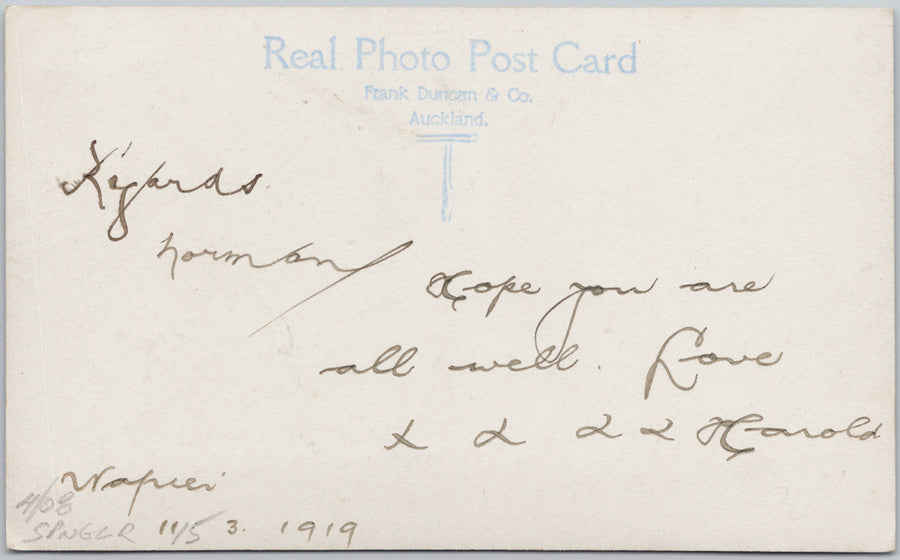 Real Photo Post Card
Frank Duncan & Co.
Auckland.
Regards.
Norman
Hope you are
all well. Love
x x x x Harold
Napier
4/08
11/5 3. 1919